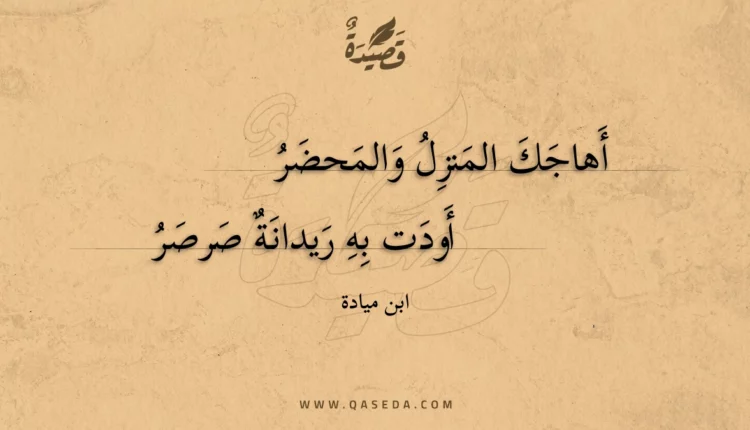 قَصِيْدَةٌ
أَهاجَكَ المَنزِلُ وَالمَحضَرُ
أَودَت بِهِ رَيدانَةٌ صَرصَرُ
ابن ميادة
WWW.QASEDA.COM